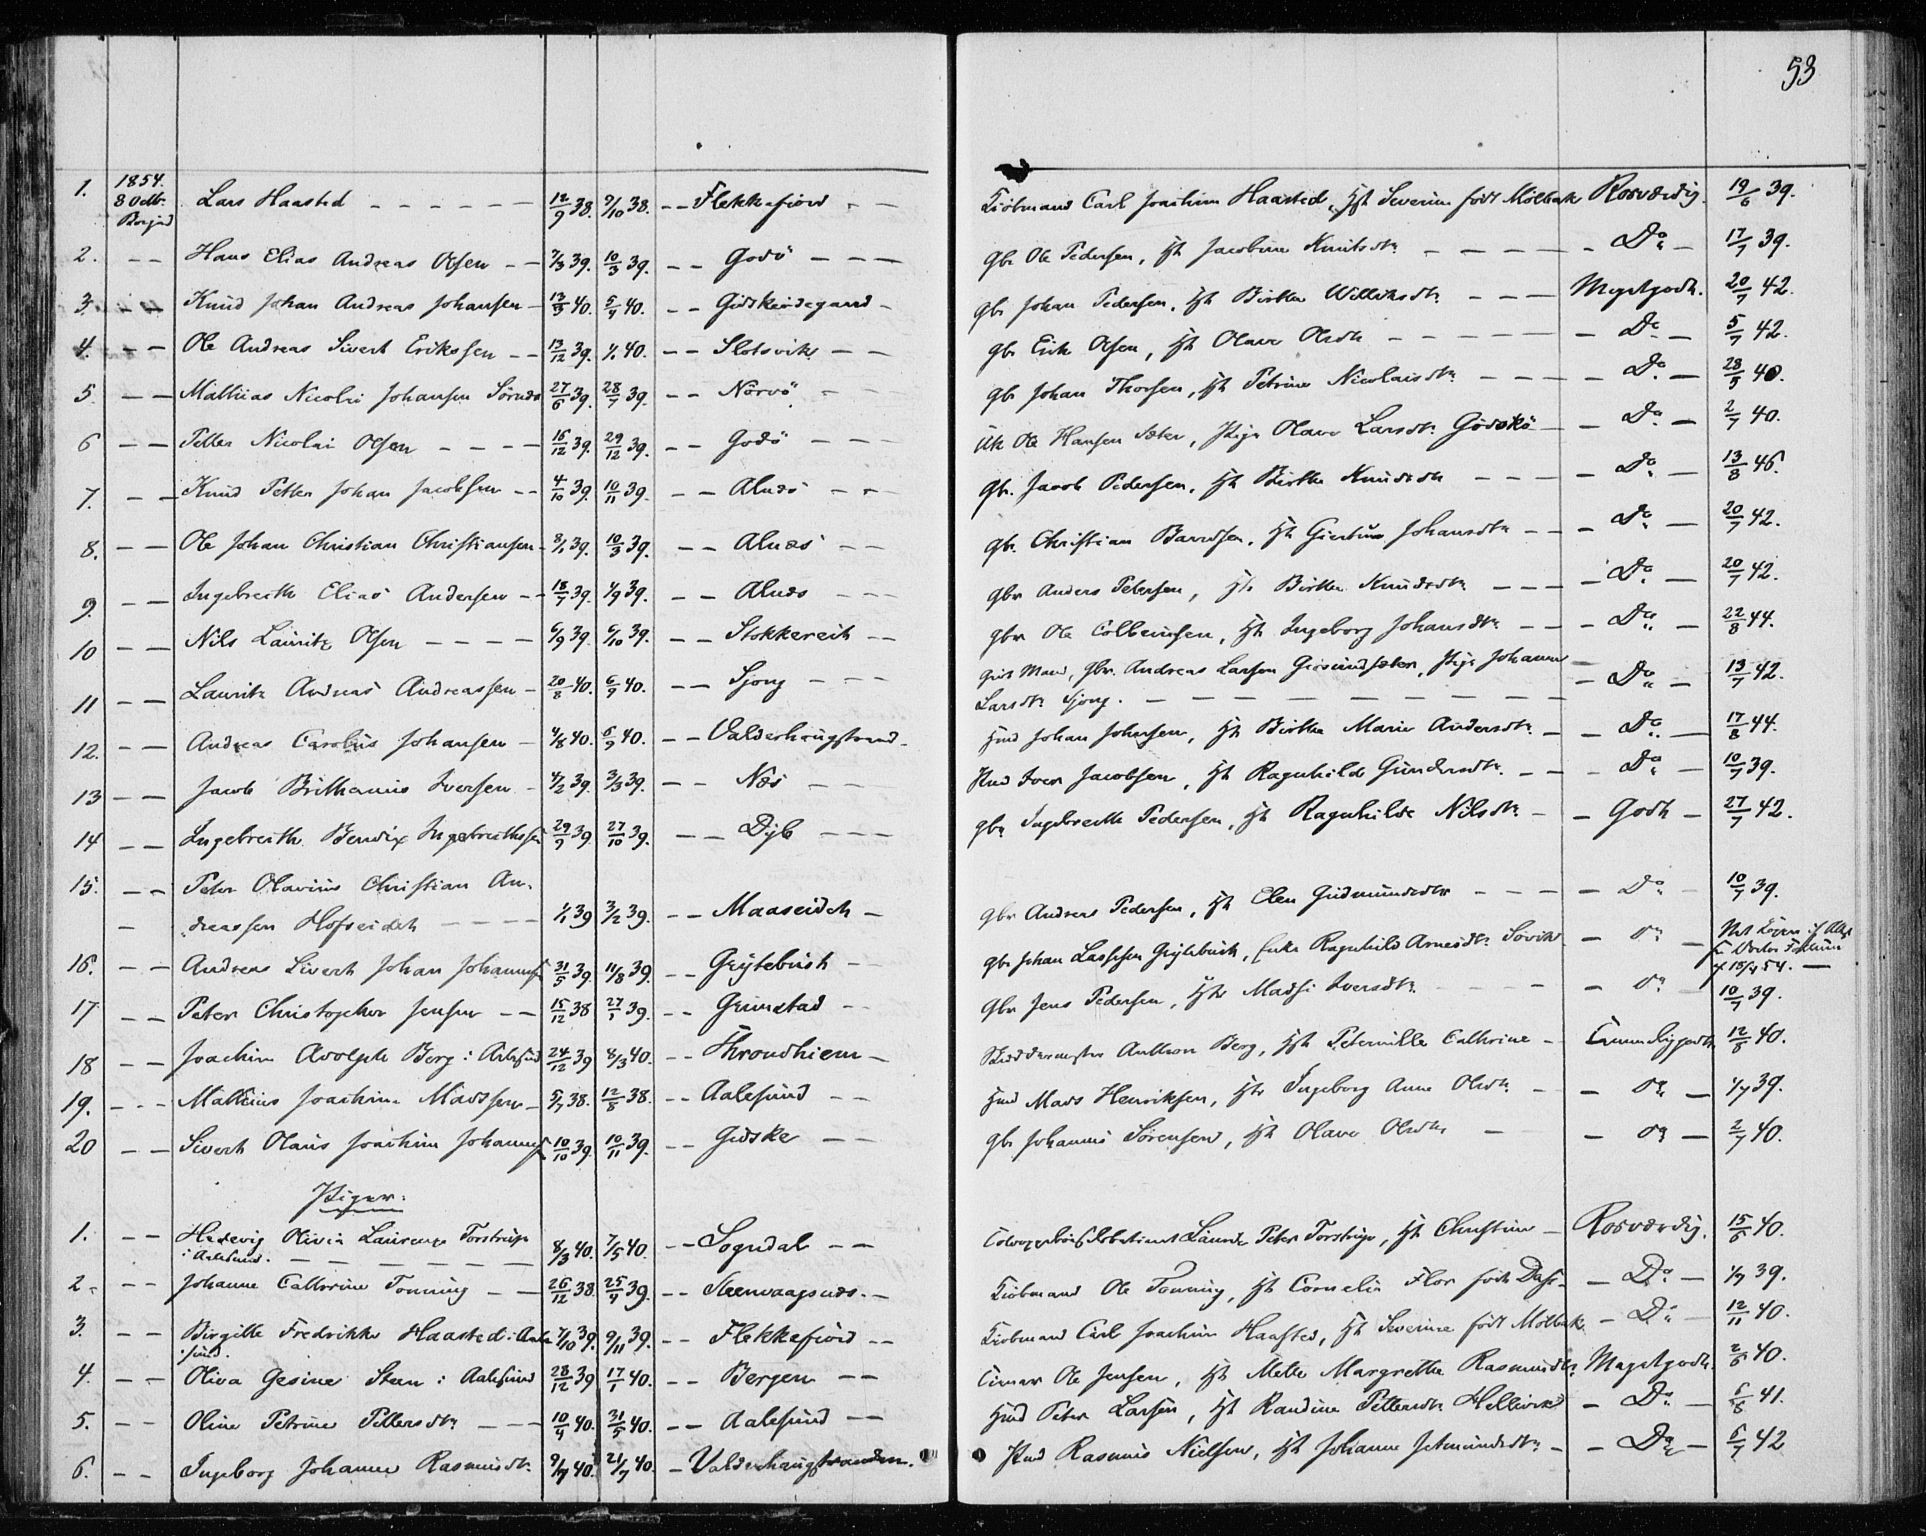 53
1. 1854. 8 Octb. Borgund Lars Haasted — — 12/9 38. 9/10 38. — — Flekkefiord — — Kiöbmand Carl Joachim Haasted, Hst Severine född Molbak Rosværdig. 19/6 39.
2. — — Hans Elias Andreas Olsen — — 7/3 39. 10/3 39. — — Godö — — — Gbr. Ole Pedersen, Ht Jacobine Knutsdtr — — Do — 17/7 39.
3. — — Knud Johan Andreas Johansen — 13/3 40. 5/4 40. — — Gidskeödegaard — Gbr Johan Pedersen, Ht Birthe Williksdtr — — Megetgodt. 20/7 42.
4. — — Ole Andreas Sivert Erikssen — — 13/12 39. 1/1 40. — — Slotsvik — — Gbr Erik Olsen, Ht Olave Olsdtr — — Do — 5/7 42.
5 — — Mathias Nicolai Johansen Sörnæs 27/6 39. 28/7 39. — — Nörvö — Gbr Johan Thorsen, Ht Petrine Nicolaisdtr — — Do — 28/5 40.
6 — — Petter Nicolai Olsen — — 15/12 39. 29/12 39. — — Godö — — Uk Ole Hansen Sæter, Pige Olave Larsdtr Gödskö — Do — 2/7 40.
7. — — Knud Petter Johan Jacobsen — — 4/10 39. 10/11 39. — — Alnæs — — Gbr. Jacob Pedersen, Ht Birthe Knudsdtr — — Do — 13/8 46.
8. — — Ole Johan Christian Christiansen — 8/1 39. 10/3 39. — — Alnæs — — Gbr. Christian Baardsen, Ht Giertine Johansdtr — — Do — 20/7 42.
9. — — Ingebreth Elias Andersen — — 18/7 39. 4/9 39. — — Alnæs — — Gbr Anders Petersen, Ht Birthe Knudsdtr — — Do — 20/7 42.
10 — — Nils Lauritz Olsen — — 6/9 39. 6/10 39. — — Stokkereit — — Gbr Ole Colbeinsen, Ht Ingeborg Johansdtr — — Do — 22/8 44.
11 — — Lauritz Andreas Andreassen — 20/8 40. 6/9 40. — — Sjong — — Gift Mand, Gbr. Andreas Larsen Giersundsæter, Pige Johanne
Larsdtr Sjong. — — Do — 13/7 42.
12. — — Andreas Carolus Johansen — 4/8 40. 6/9 40. — — Valderhougstrand. Hmd Johan Johnsen, Ht Birthe Marie Andersdtr — Do — 17/8 44.
13 — — Jacob Brithanius Iversen — 4/2 39. 3/3 39. — — Næs — — Hmd Iver Jacobsen, Ht Ragnhild Gundersdtr. — — Do — 10/7 39.
14 — — Ingebreth Bendix Ingebrethsen 29/9 39 27/10 39. — — Dyb — — Gbr Ingebreth Pedersen, Ht Ragnhilde Nilsdtr — — Godt — 27/7 42.
15. — — Peter Olavius Christian An-
dreassen Hofseidet — — 1/1 39 3/2 39. — — Maaseidet — Gbr Andreas Pedersen, Ht Elen Gudmundsdtr — — Do — 10/7 39.
16. — — Andreas Sivert Johan Johannes 31/5 39. 11/8 39. — — Grytebust — — Gbr Johan Lassesen Grytebust, Enke Ragnhild Arnesdtr Sövik — do — 15/4 54. —
17 — — Peter Christopher Jensen — — 15/12 38 27/1 39. — — Grimstad — — Gbr Jens Pedersen, Hst Madsi Iversdtr — — do — 10/7 39.
18 — — Joachim Adolph Berg i Aalesund 24/12 39 8/3 40. — — Throndhiem — Anthon Berg, Hst Peternille Cathrine — Temmeliggodt 12/8 40.
19. — — Mathius Joachim Madssen — 5/7 38. 12/8 38. — — Aalesund — — Hmd Mads Henriksen, Hst Ingeborg Anne Olsdtr — do — 1/7 39.
20 — — Sivert Olaus Joachim Johannes 10/10 39. 10/11 39. — — Gidske — — Gbr Johannes Sörensen, Ht Olave Olsdtr — do — 2/7 40.
Piger.
1. — — Hedevig Olivia Laurenze Forstrup
i Aalesund. — — 8/3 40. 7/5 40 — — Sogndal — — Peter Forstrup, Ht Christine — Rosværdig. 15/6 40.
2. — — Johanne Cathrine Tonning — — 26/12 38. 25/4 39. — — Steenvaagsnæs. — Kiöbmand Ole Tonning, Ht Cornelia Flor födt Dass — Do — 1/7 39.
3. — — Birgitte Fredrikke Haasted i Aale-
sund. 7/10 39. 9/11 39. — — Flekkefiord — — Kiöbmand Carl Joachim Haasted, Ht Severine födt Molbak — Do — 12/11 40.
4. — — Oliva Gesine Steen i Aalesund 28/12 39 17/1 40. — — Bergen — — Ole Jensen, Ht Mette Margrethe Rasmusdtr Megetgodt. 2/6 40.
5. — — Oline Petrine Pettersdtr — — 10/4 40. 31/5 40. — — Aalesund — — Hmd Peter Larsen, Ht Randine Pettersdtr Hellevik — Do — 6/8 41.
6. — — Ingeborg Johanne Rasmusdtr 9/7 40. 21/7 40. — Valderhaugstranden. Hmd Rasmus Nielsen, Ht Johanne Asmundsdtr — — Do — 6/7 42